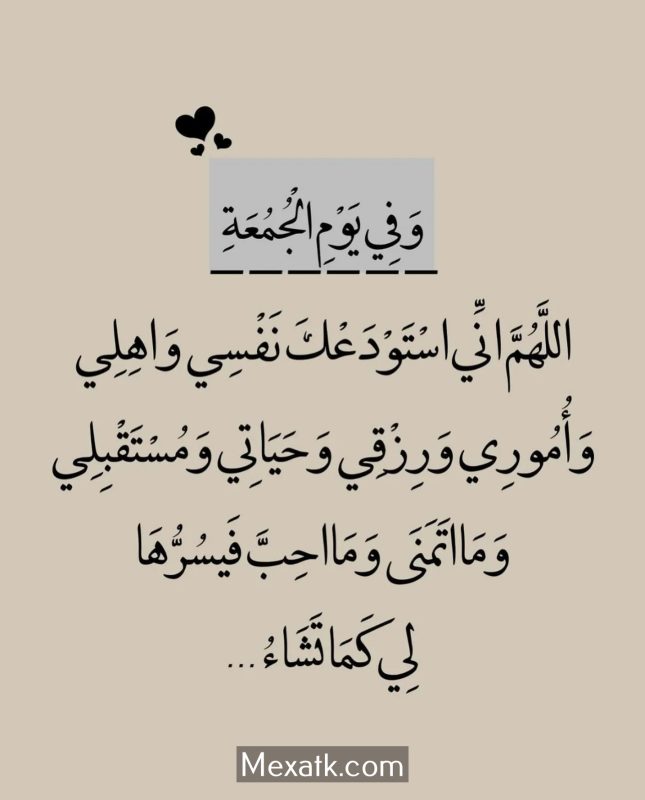 وَفِي يَوْمِ الْجُمُعَةِ
اللَّهُمَّ انِّي اسْتَوْدَعْكَ نَفْسِي وَاهِلِي
وَأُمُورِي وَرِزْقِي وَحَيَاتِي وَمُسْتَقْبِلِي
وَمَا اتَمَنَى وَمَا احِبَّ فَيسُرُّهَا
لِي كَمَا تَشَاءُ ...
Mexatk.com